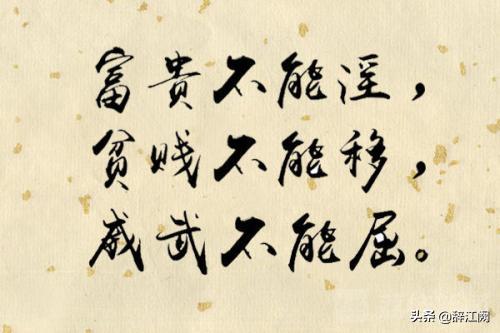 富贵不能淫，
贫贱不能移，
威武不能屈。
头条 @辞江阙